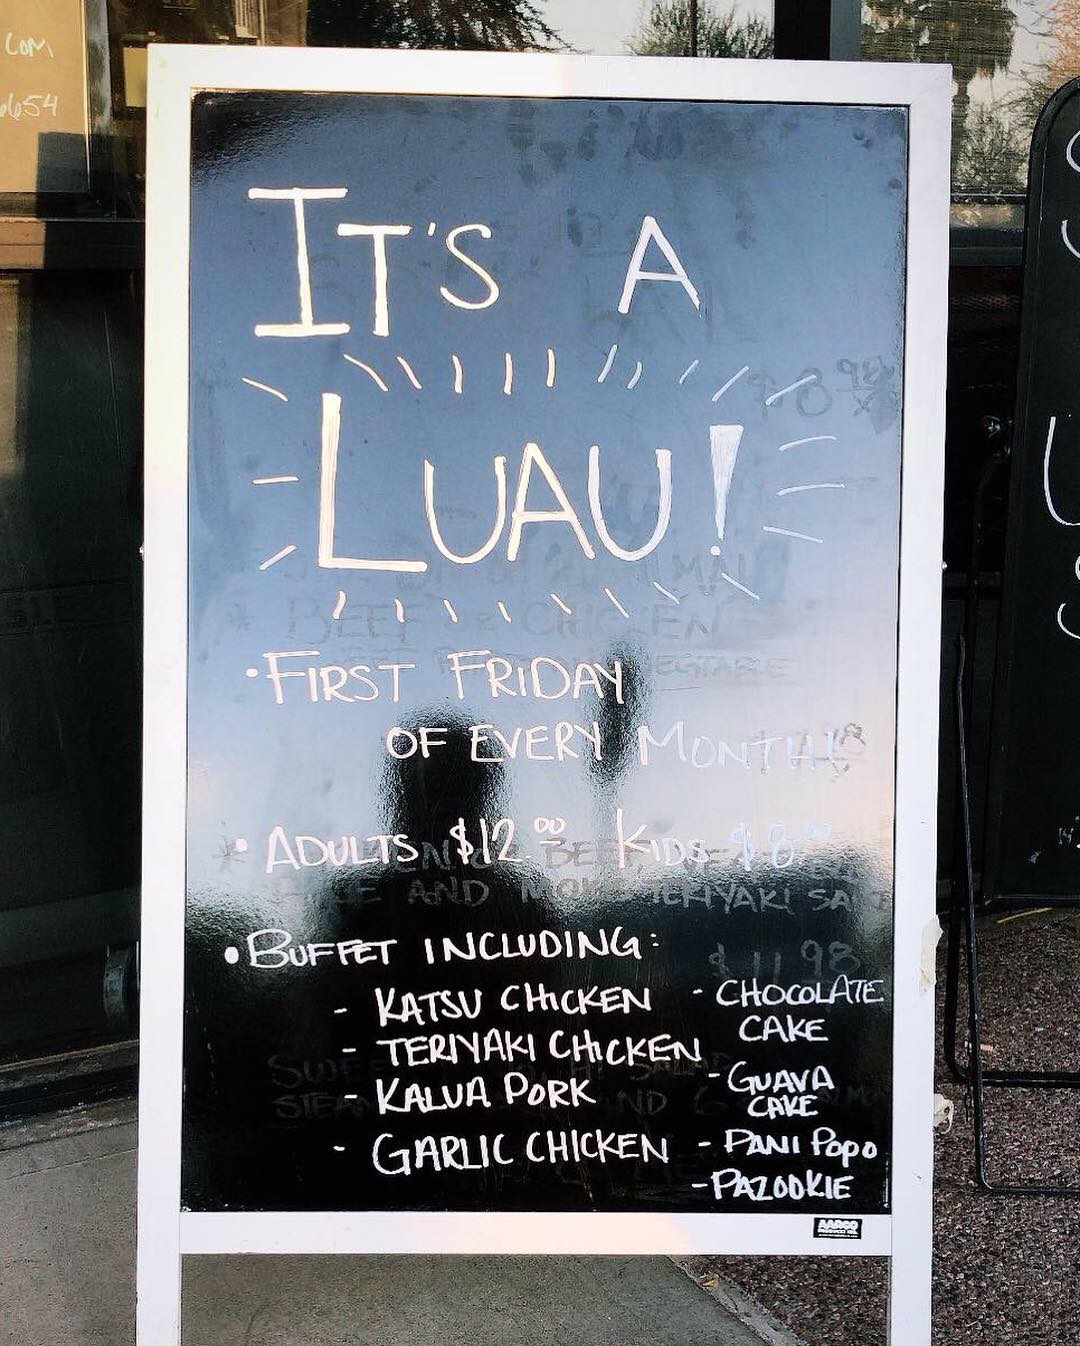 COM
6654
IT'S A
LUAU!
• FIRST FRIDAY
OF EVERY MONTH!
• ADULTS $12.00 KIDS $8.00
• BUFFET INCLUDING:
- KATSU CHICKEN
- TERIYAKI CHICKEN
- KALUA PORK
- GARLIC CHICKEN
- CHOCOLATE
CAKE
- GUAVA
CAKE
- PANI POPO
- PAZOOKIE
AARCO
* BEEF CHICKEN
AND
TERIYAKI
$11.98
$8.98